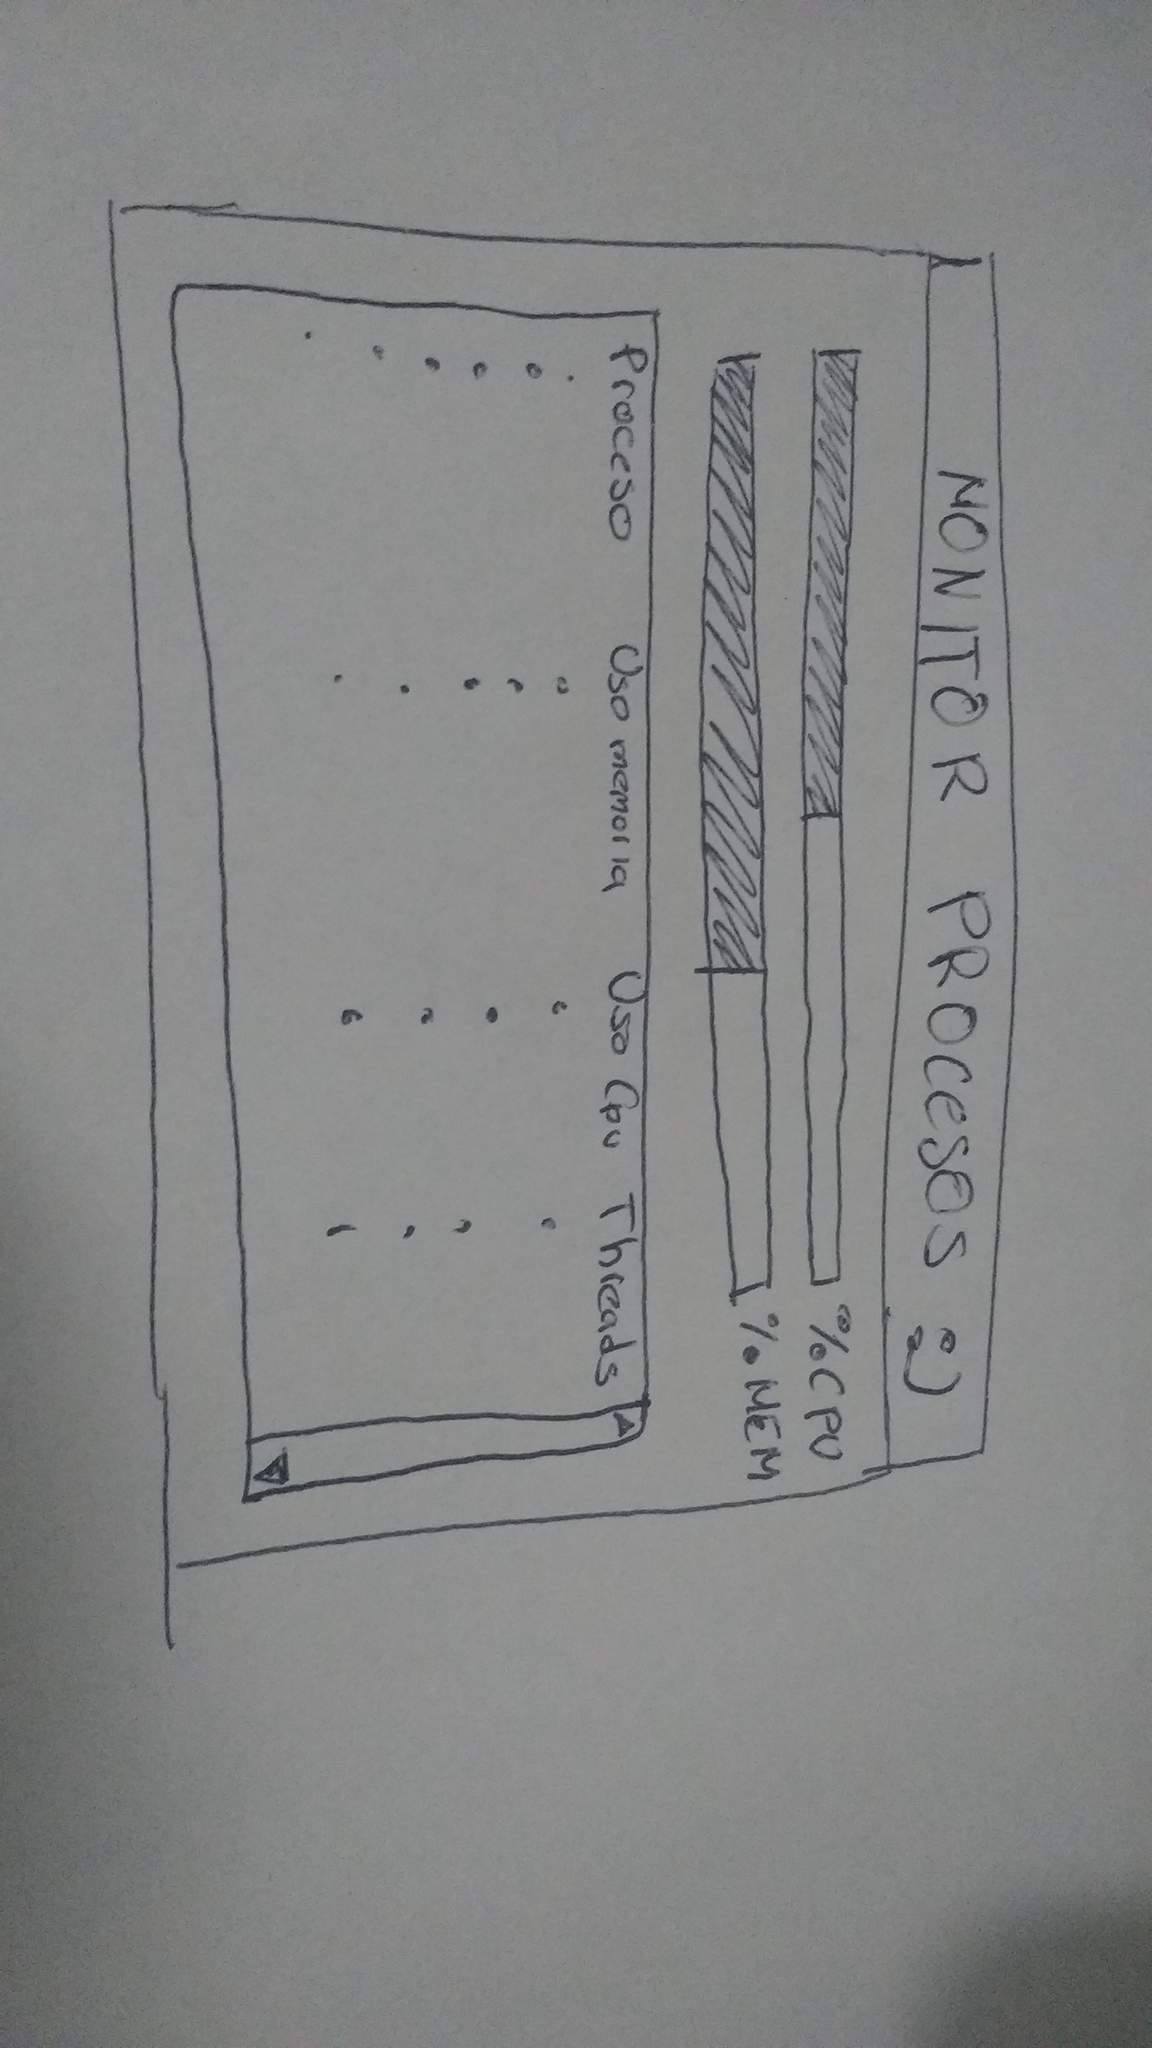 MONITOR PROCESOS :)
%CPU
%MEM
Proceso Uso memoria Uso Cpu Threads